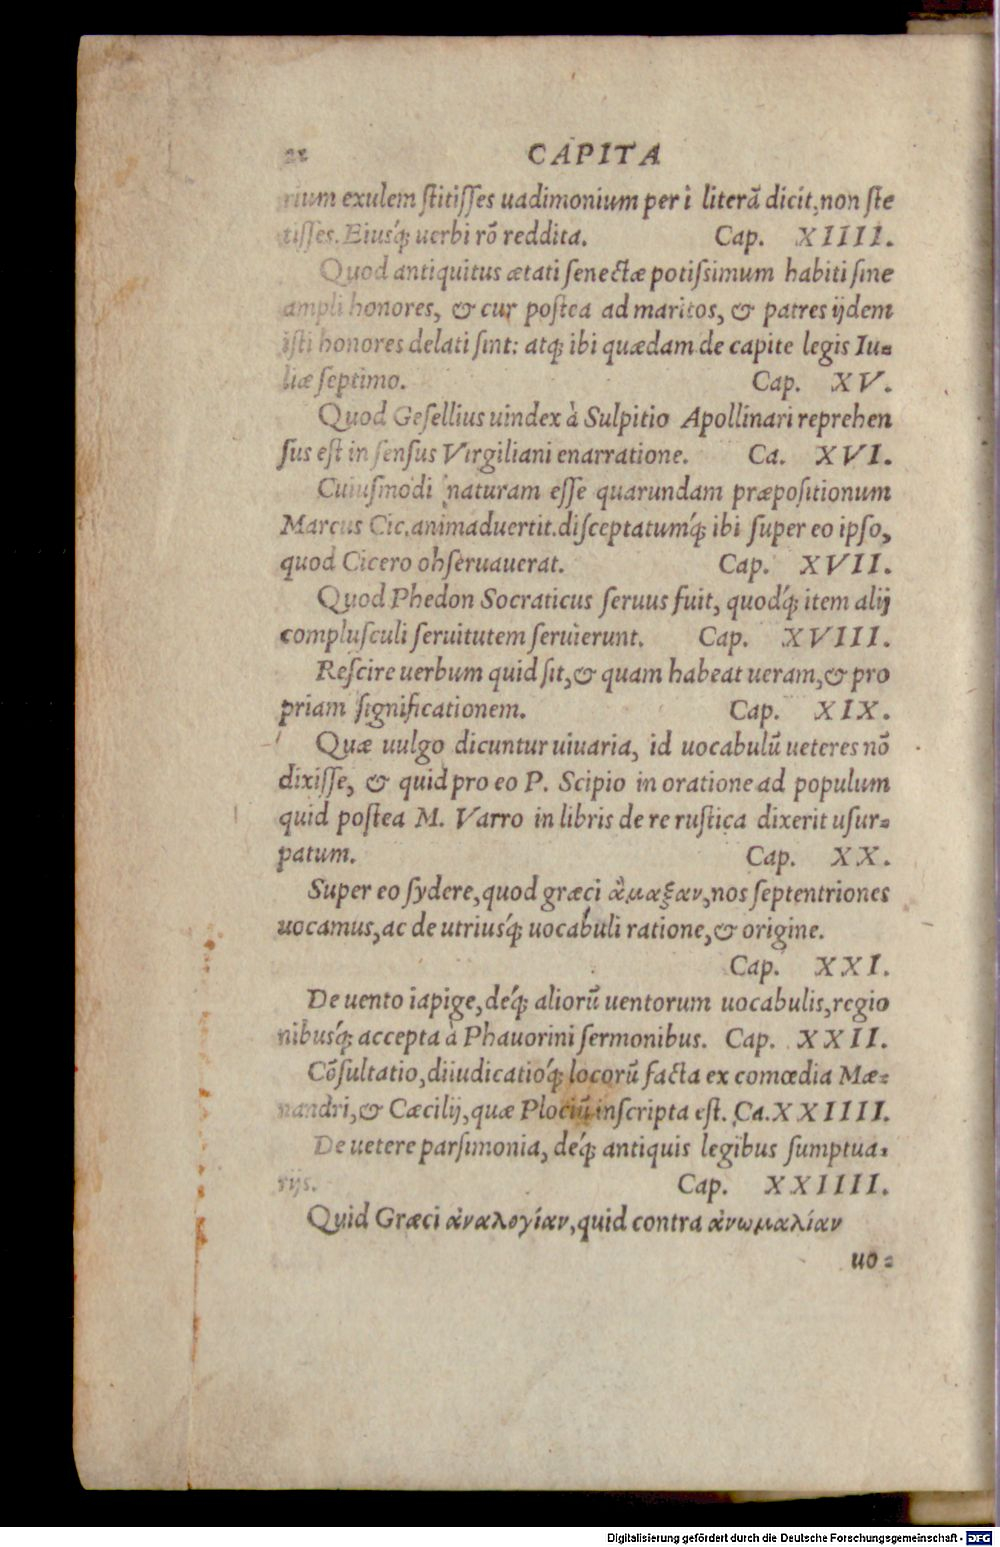 22 CAPITA
rium exulem ſtitiſſes uadimonium per i literã dicit, non ſte
tiſſes. Eiuſq́; uerbi rõ reddita. Cap. XIIII.
Quod antiquitus ætati ſenectæ potiſsimum habiti ſine
ampli honores, & cur poſtea ad maritos, & patres ijdem
iſti honores delati ſint: atq; ibi quædam de capite legis Iu-
liæ ſeptimo. Cap. XV.
Quod Geſellius uindex à Sulpitio Apollinari reprehen
ſus eſt in ſenſus Virgiliani enarratione. Ca. XVI.
Cuiuſmodi naturam eſſe quarundam præpoſitionum
Marcus Cic. animaduertit. diſceptatumq́; ibi ſuper eo ipſo,
quod Cicero obſeruauerat. Cap. XVII.
Quod Phedon Socraticus ſeruus fuit, quodq́; item alij
compluſculi ſeruitutem ſeruierunt. Cap. XVIII.
Reſcire uerbum quid ſit, & quam habeat ueram, & pro
priam ſignificationem. Cap. XIX.
Quæ uulgo dicuntur uiuaria, id uocabulũ ueteres nõ
dixiſſe, & quid pro eo P. Scipio in oratione ad populum
quid poſtea M. Varro in libris de re ruſtica dixerit uſur-
patum. Cap. XX.
Super eo ſydere, quod græci ἅμαξαν, nos ſeptentriones
uocamus, ac de utriuſq́; uocabuli ratione, & origine.
Cap. XXI.
De uento iapige, deq́; aliorũ uentorum uocabulis, regio
nibuſq́; accepta à Phauorini ſermonibus. Cap. XXII.
Cõſultatio, diiudicatioq́; locorũ facta ex comœdia Mæ-
nandri, & Cæcilij, quæ Plociũ inſcripta eſt. Ca. XXIIII.
De uetere parſimonia, deq́; antiquis legibus ſumptua-
rijs. Cap. XXIIII.
Quid Græci ἀναλογίαν, quid contra ἀνωμαλίαν
uo-
Digitalisierung gefördert durch die Deutsche Forschungsgemeinschaft - DFG